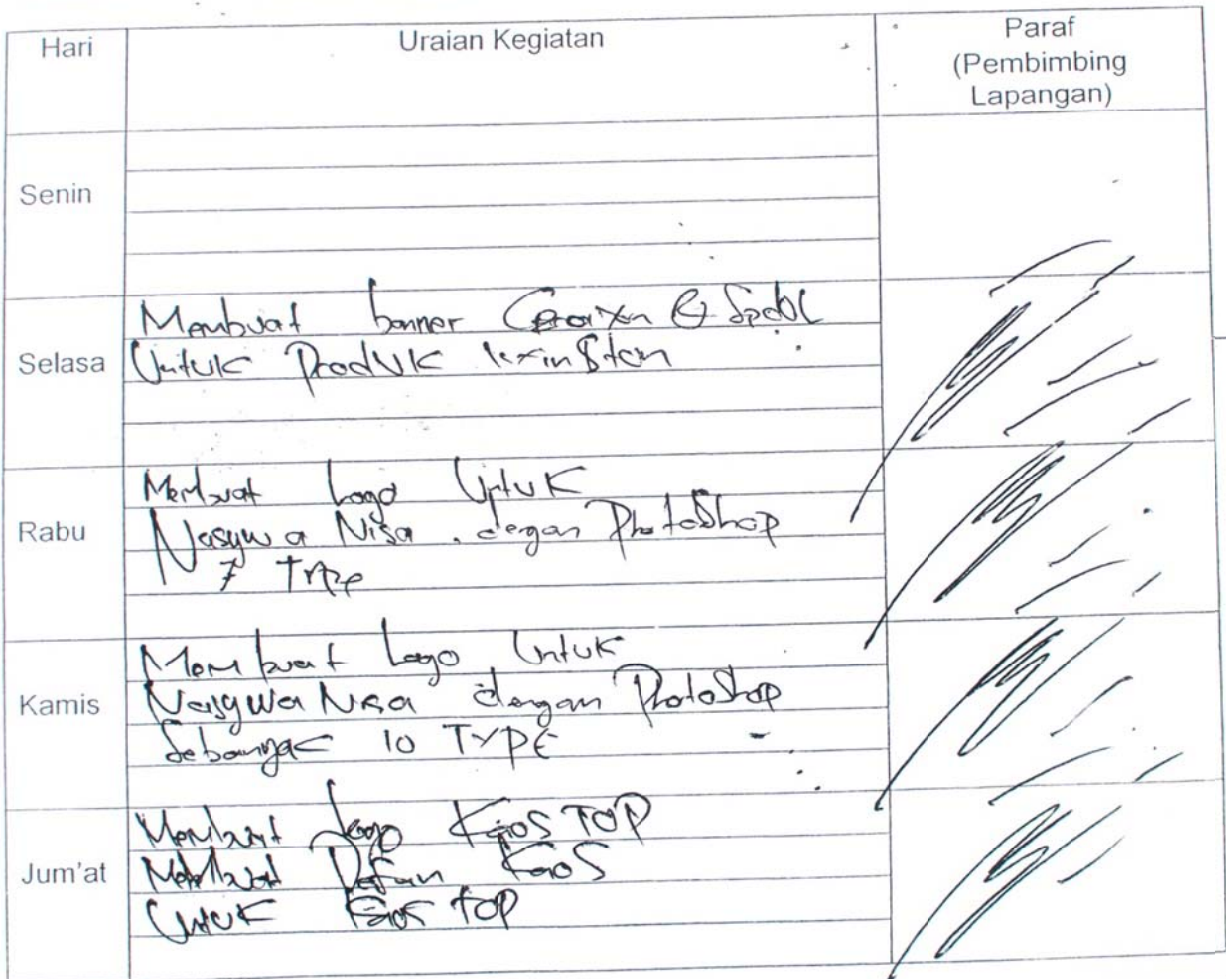 Hari
Uraian Kegiatan
Paraf
(Pembimbing
Lapangan)
Senin
Selasa
Membuat banner &
Untuk Produk
Rabu
Membuat Logo Untuk
Nasywa Nisa . dengan Photoshop
7 Type
Kamis
Membuat Logo Untuk
Nasywa Nisa dengan Photoshop
Sebanyak 10 TYPE
Jum'at
Membuat Logo Kaos TOP
Membuat Desain Kaos
Untuk Kaos TOP